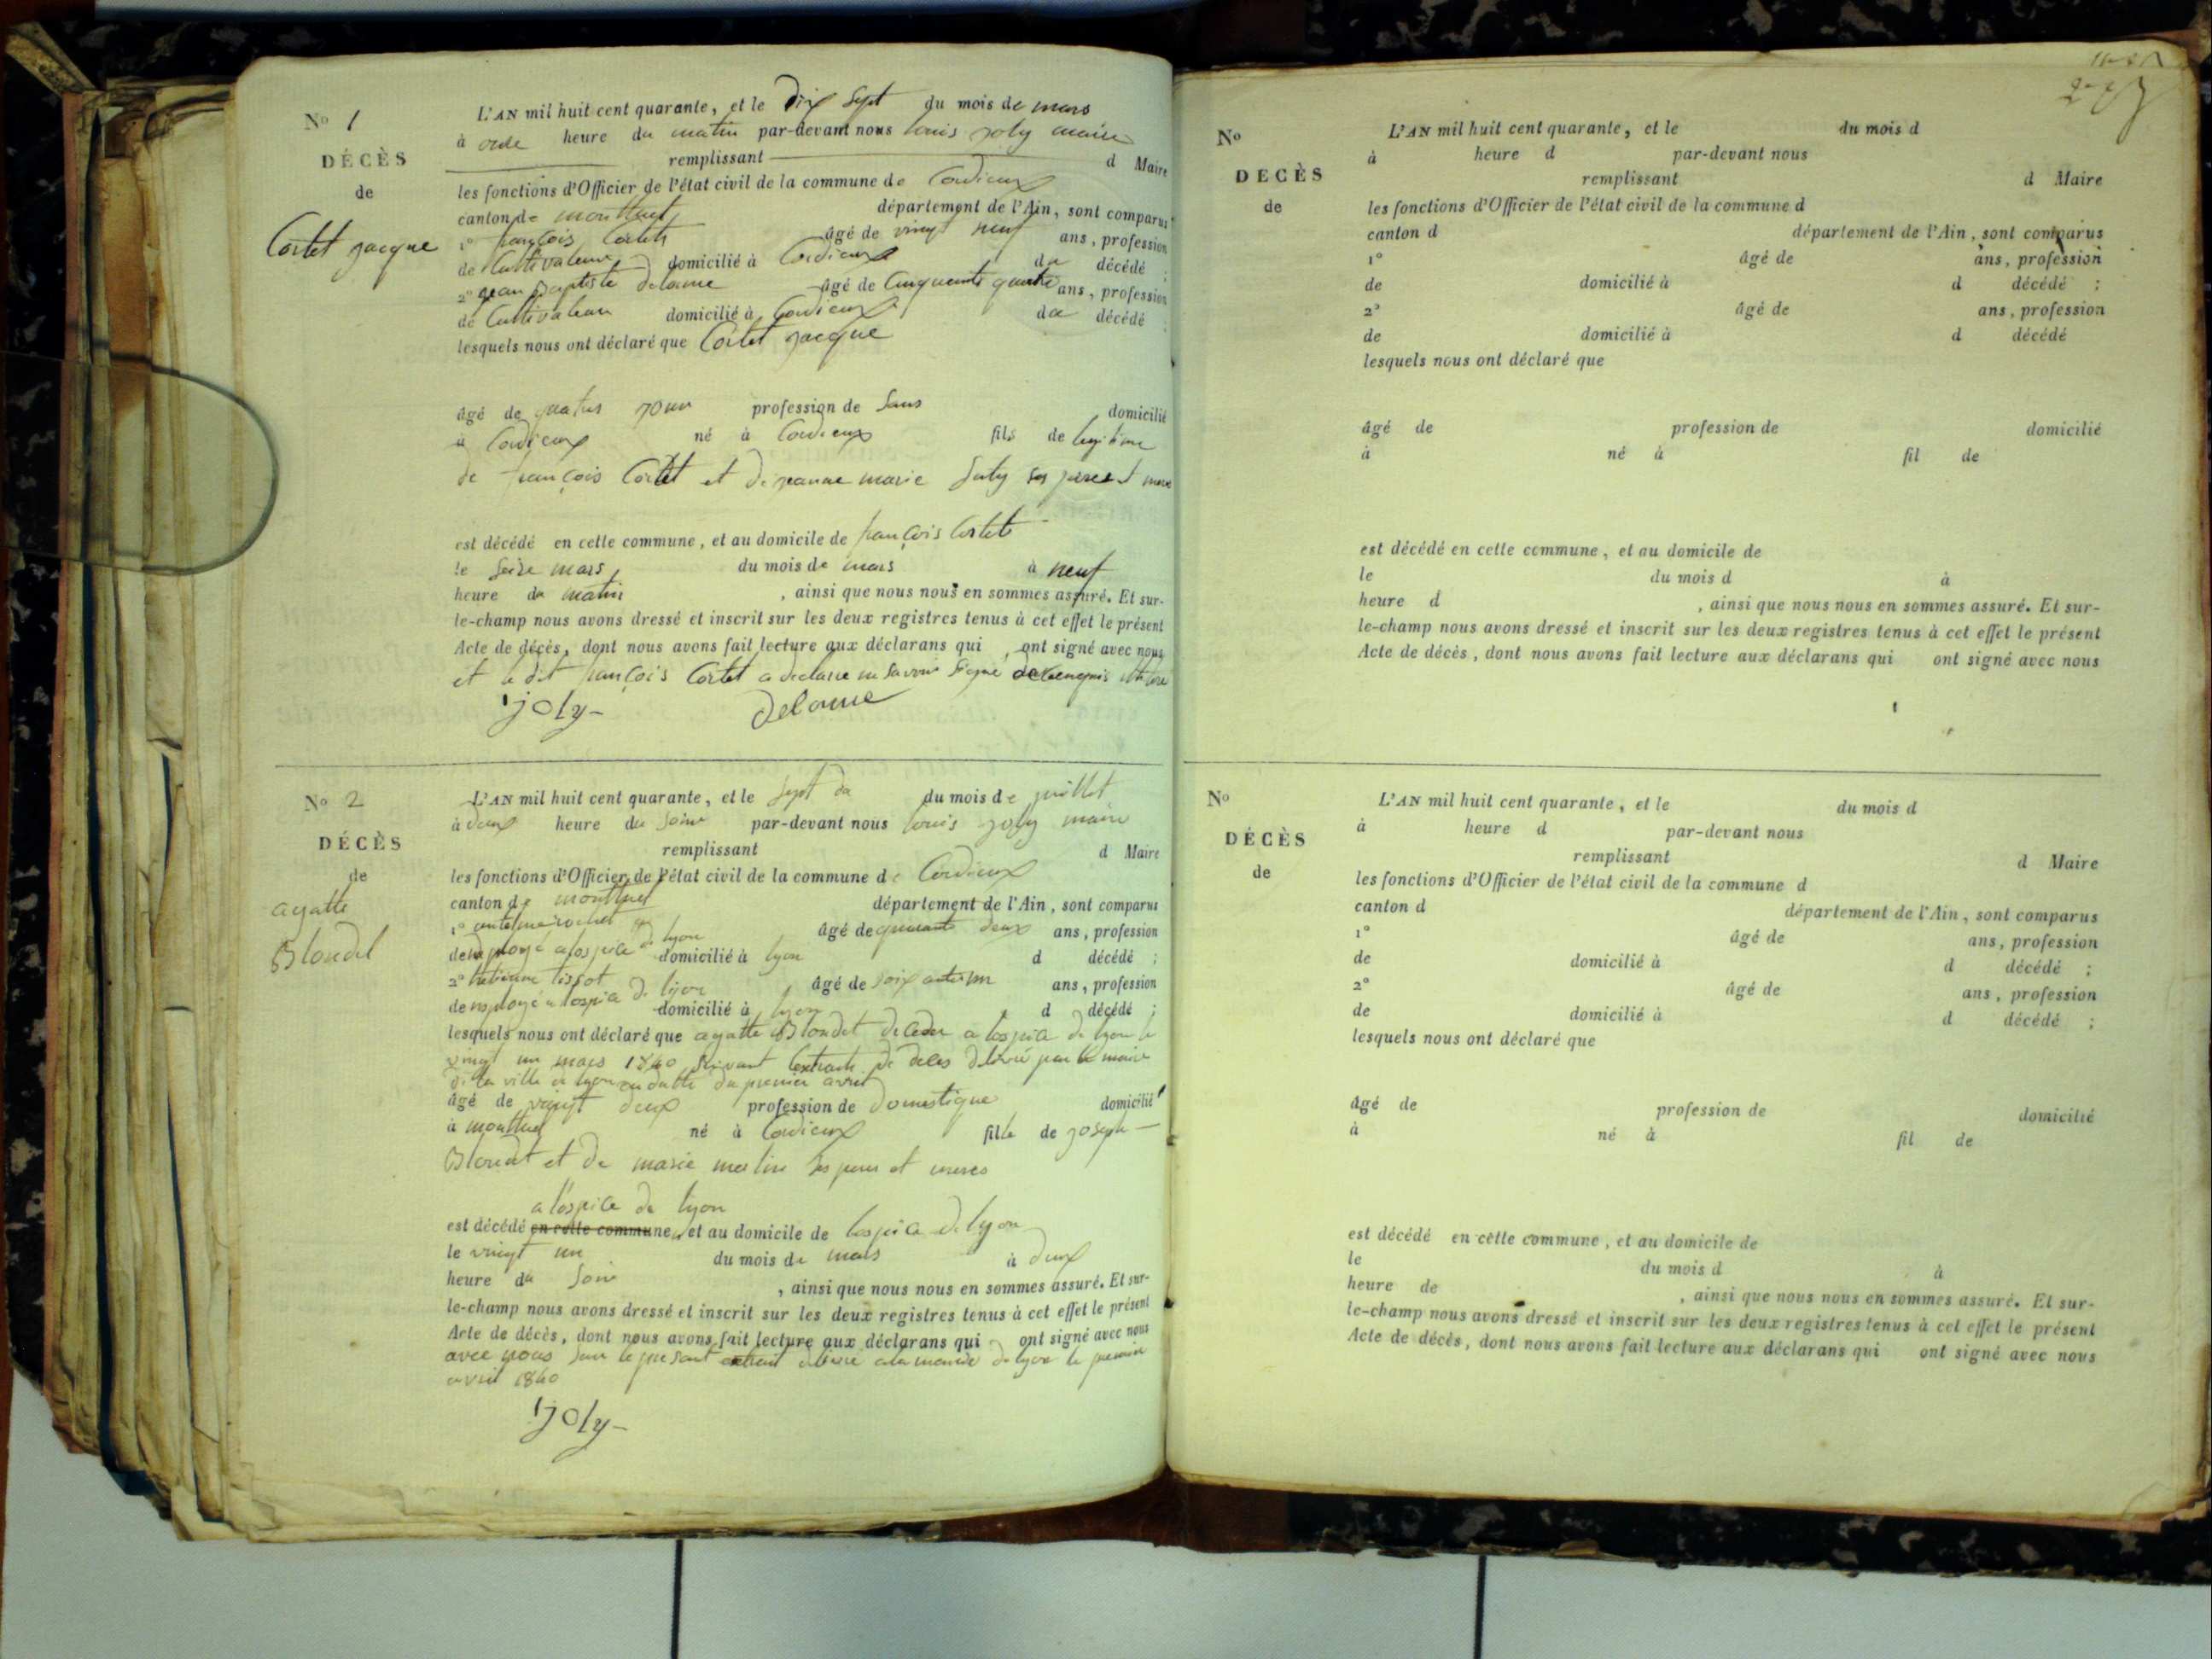 No 1
DÉCÈS
de
Cortet jacque
L'AN mil huit cent quarante, et le Dix Sept du mois de mars
à onde heure du matin par-devant nous louis joly maire
remplissant d Maire
les fonctions d'Officier de l'état civil de la commune de Cordieux
canton de montluel département de l'Ain, sont comparus
1° françois Cortet âgé de vingt neuf ans, profession
de Cultivateur domicilié à Cordieux du décédé ;
2° jean Baptiste delorme âgé de Cinquante quatre ans, profession
de Cultivateur domicilié à Cordieux du décédé ;
lesquels nous ont déclaré que Cortet jacque
âgé de quatres jour profession de Sans domicilié
à Cordieux né à Cordieux fils de legitime
de françois Cortet et de jeanne marie ses peres et mere
est décédé en cette commune, et au domicile de françois Cortet
le Seize mars du mois de mars à neuf
heure du matin , ainsi que nous nous en sommes assuré. Et sur-
le-champ nous avons dressé et inscrit sur les deux registres tenus à cet effet le présent
Acte de décès, dont nous avons fait lecture aux déclarans qui , ont signé avec nous
et le dit françois Cortet a declare ne savoir signe de
joly- Delorme
No 2
DÉCÈS
de
agatte
Blondel
L'AN mil huit cent quarante, et le Sept du du mois de juillet
à deux heure du Soire par-devant nous louis joly maire
remplissant d Maire
les fonctions d'Officier de l'état civil de la commune de Cordieux
canton de montluel département de l'Ain, sont comparus
1° antelme rochet âgé de quarante deux ans, profession
de employé a lospice de lyon domicilié à lyon d décédé ;
2° tissot âgé de soixante un ans, profession
de employé a lospice de lyon domicilié à lyon d décédé ;
lesquels nous ont déclaré que agatte Blondet a lospice de lyon le
vingt un mars 1840 Suivant lextrait de deces delivré par le maire
de la ville de lyon en datte du premier avril
âgé de vingt deux profession de Domestique domicilié
à montluel né à Cordieux fille de joseph
Blondet et de marie merlin ses peres et meres
a lospice de lyon
est décédé en cette commune, et au domicile de lospice de lyon
le vingt un du mois de mars à deux
heure du Soire , ainsi que nous nous en sommes assuré. Et sur-
le-champ nous avons dressé et inscrit sur les deux registres tenus à cet effet le présent
Acte de décès, dont nous avons fait lecture aux déclarans qui ont signé avec nous
avec nous sur le present extrait de lyon le premier
avril 1840
joly-
No
DECÈS
de
L'AN mil huit cent quarante, et le du mois d
à heure d par-devant nous
remplissant d Maire
les fonctions d'Officier de l'état civil de la commune d
canton d département de l'Ain, sont comparus
1° âgé de ans, profession
de domicilié à d décédé ;
2° âgé de ans, profession
de domicilié à d décédé
lesquels nous ont déclaré que
âgé de profession de domicilié
à né à fil de
est décédé en cette commune, et au domicile de
le du mois d à
heure d , ainsi que nous nous en sommes assuré. Et sur-
le-champ nous avons dressé et inscrit sur les deux registres tenus à cet effet le présent
Acte de décès, dont nous avons fait lecture aux déclarans qui ont signé avec nous
No
DÉCÈS
de
L'AN mil huit cent quarante, et le du mois d
à heure d par-devant nous
remplissant d Maire
les fonctions d'Officier de l'état civil de la commune d
canton d département de l'Ain, sont comparus
1° âgé de ans, profession
de domicilié à d décédé ;
2° âgé de ans, profession
de domicilié à d décédé ;
lesquels nous ont déclaré que
âgé de profession de domicilié
à né à fil de
est décédé en cette commune, et au domicile de
le du mois d à
heure de , ainsi que nous nous en sommes assuré. Et sur-
le-champ nous avons dressé et inscrit sur les deux registres tenus à cet effet le présent
Acte de décès, dont nous avons fait lecture aux déclarans qui ont signé avec nous